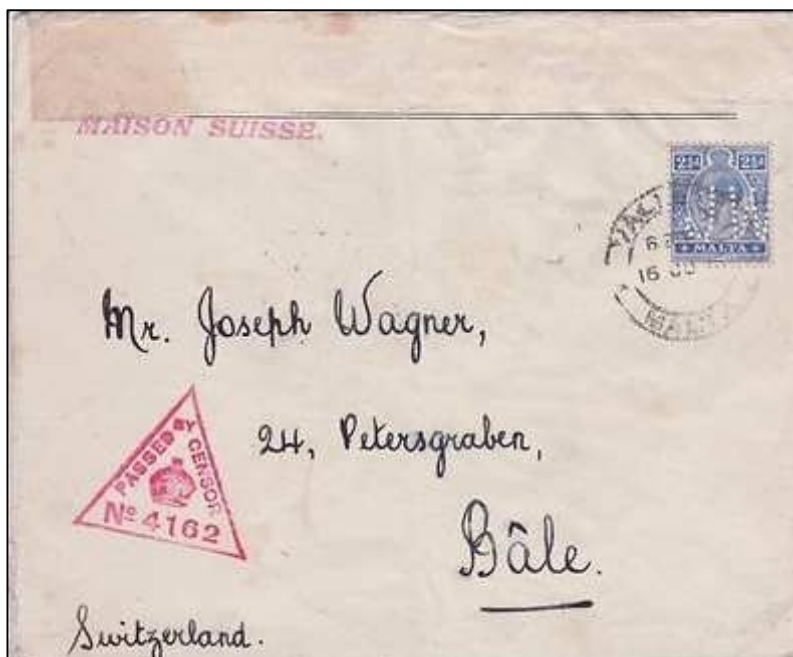 MAISON SUISSE.
2½d 2½d
MALTA
16
MALTA
Mr. Joseph Wagner,
24, Petersgraben,
Bâle.
PASSED BY CENSOR
No 4162
Switzerland.